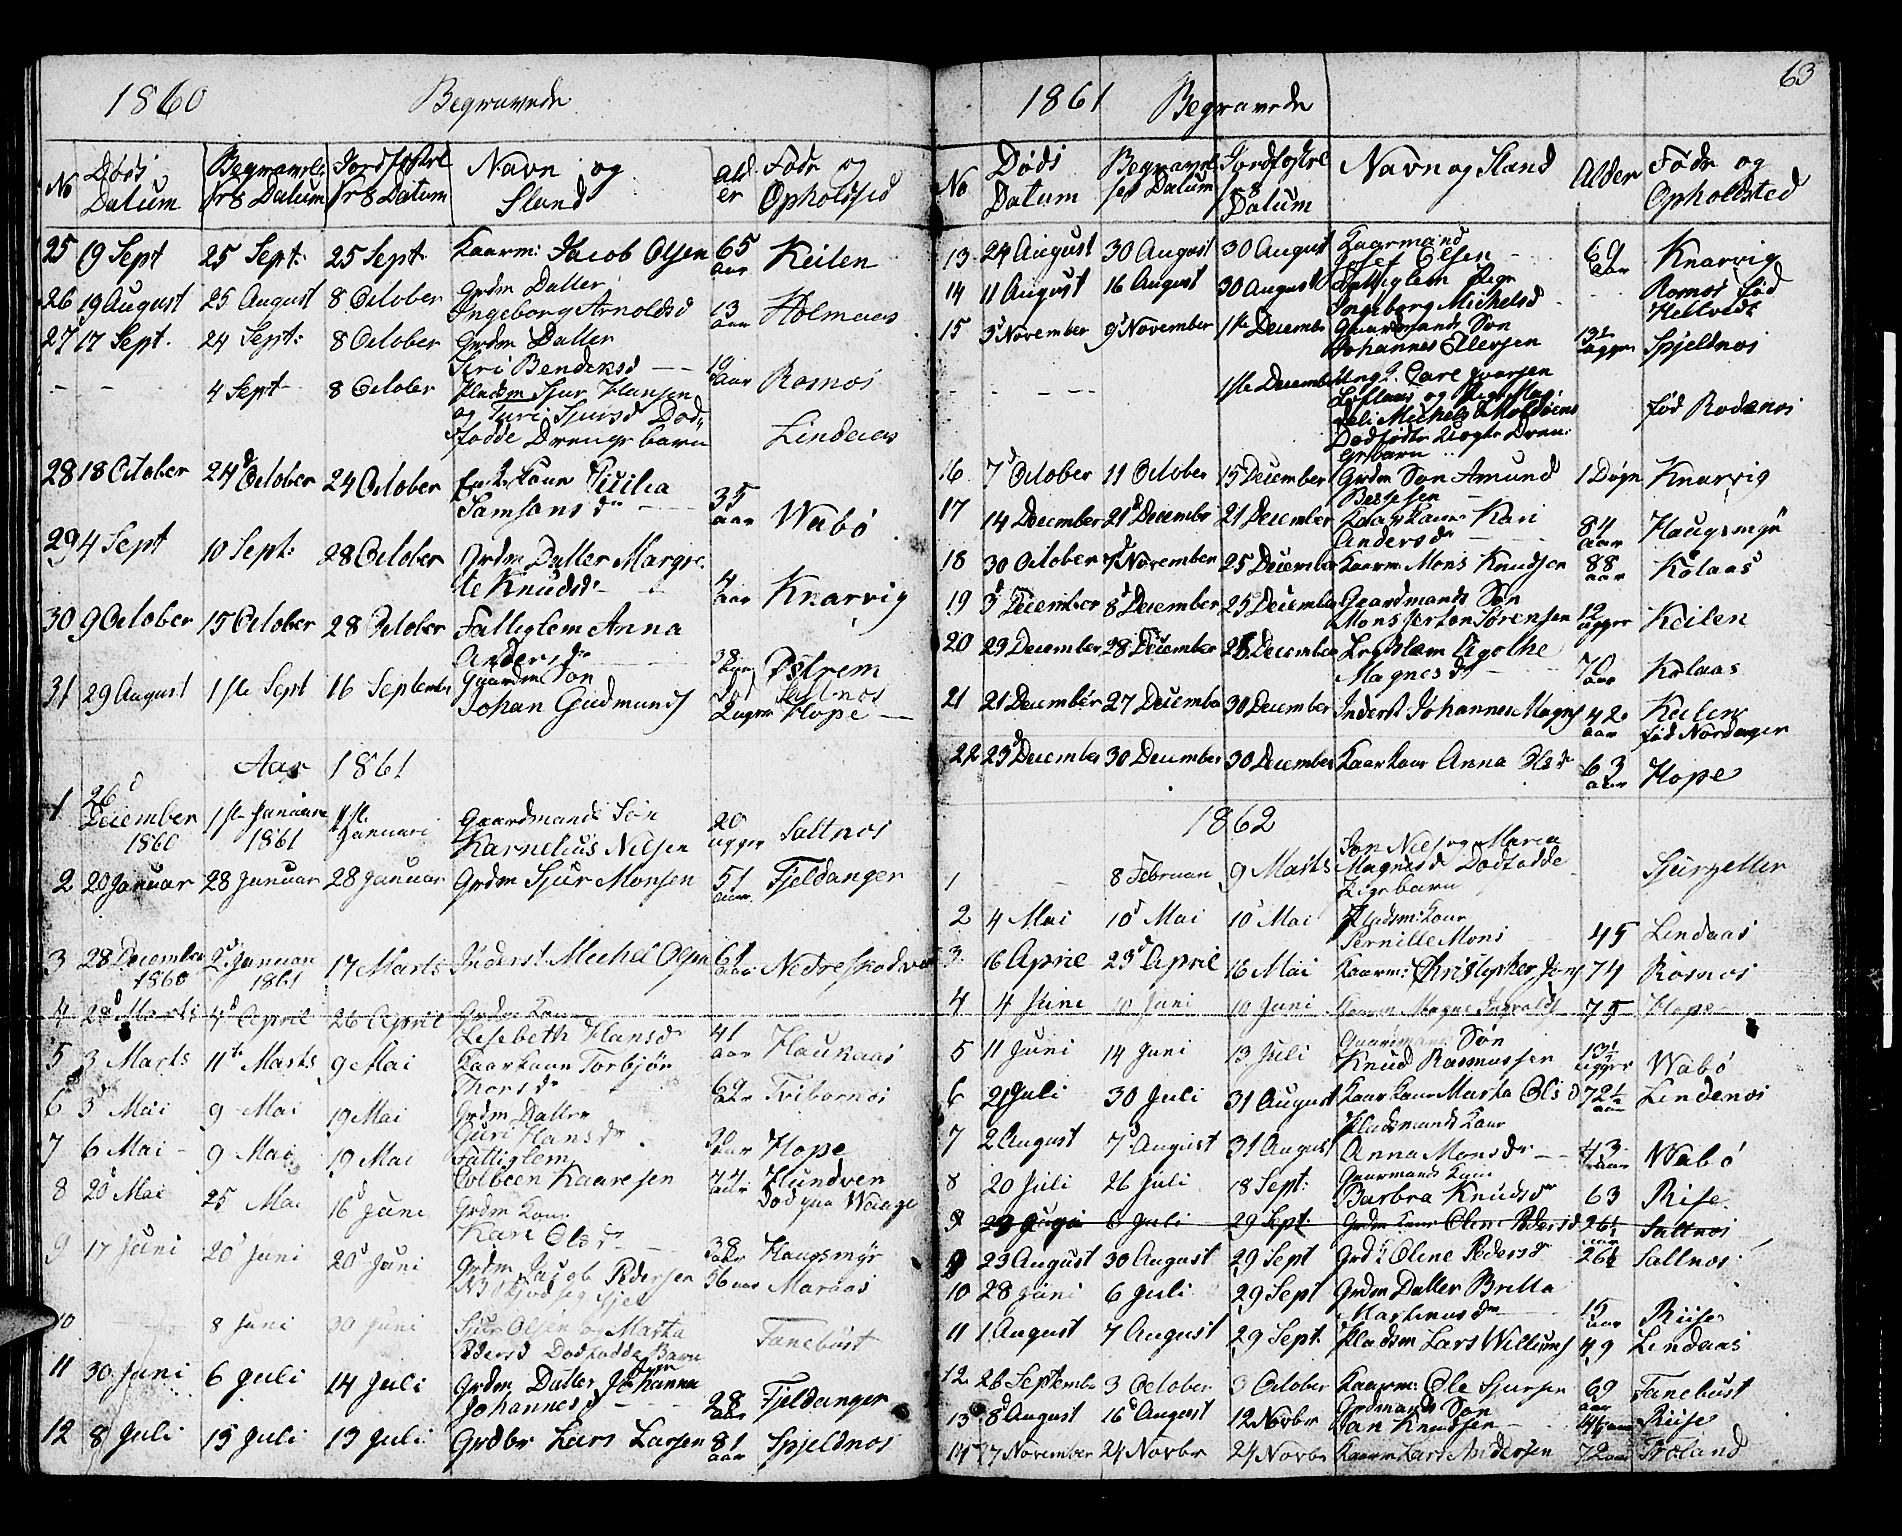 1860 Begravede
No Døds Datum Begravelses Datum Jordfæstelses Datum Navn og Stand Alder Føde og Opholdsted
25 19 Sept 25 Sept: 25 Sept. Kaarm: Jacob Olsen 65 aar Keilen
26 19 August 25 August 8 October Grdm Datter
Ingeborg Arnoldsd 13 aar Holmaas
27 17 Sept. 24 Sept: 8 October Grdm Datter
Siri Bendiksd aar Rosnos
4 Sept 8 October Pladsm Sjur Hansen
og Turi Sjursd Død
fødde Drengebarn Lindaas
28 18 October 24d October 24 October Kone Cicilia
Samsonsdr 35 aar Wabø
29 4 Sept 10 Sept: 28 October Grdm Datter Margre
te Knudsdr 4 aar Knarvig
30 9 October 15 October 28 October Fattiglem Anna
Andersdr 38 aar Østrem
31 29 August 1ste Sept 16 September Gaardm Søn
Johan Gudmunds 2 uger Hope
Aar 1861
1 26d December 1860 1ste Januar 1861 1ste Januari Gaardmands Søn
Karnelius Nilsen 20 ugger Saltnos
2 20 Januar 28 Januar 28 Januar Grdm Sjur Monsen 51 aar Fjeldanger
3 28 December 1860 2d Januar 1861 17 Marts Inderst Michel Olsen 61 aar Nedreskodven
4 28d Marts 4d April 26 April Grdm Kone
Lisebeth Hansdr 41 aar Haukaas
5 3 Marts 11te Marts 9 Mai Kaarkaane Torbjør
Thorsdr 69 aar Tvibornos
6 3d Mai 9 Mai 19 Mai Grdm Datter
Guri Hansdr
7 6 Mai 9 Mai 19 Mai Fattiglem Hope
Colbeen Kaaresen 74 aar Hundven
8 20d Mai 25 Mai 16d Juni Grdm Kone Død paa Waage
Kari Olsdr 38 aar Haugsmyr
9 17 Juni 20d Juni 20d Juni Grdm Jacob Pedersen 56 aar Maraas
10 8 Juni 30 Juni Sjur Olsen og Marta
Pedersd Dødfødde Barn Fanebust
11 30 Juni 6 Juli 14 Juli Grdm Datter Johanna
Johannesd 28 aar Fjeldanger
12 8 Juli 13 Juli 13 Juli Grdbr Lars Larsen 81 aar Spjeldnos
63
1861 Begravede
No Døds Datum Begravelses Datum Jordfæstelses Datum Navn og Stand Alder Føde og Opholdsted
13 24 August 30 August 30 August Kaarmand
Josef Olsen 69 aar Knarvig
14 11 August 16 August 30 August Fattiglem Pige
Ingeborg Michelsd Rosnos fød Helltvedt
15 3d November 9d November 1ste December Gaardmands Søn
Johannes Ellersen 13½ ugger Spjeldnos
1ste December Ungk. Carl Ivarsen
og Pige
Michelsd
Dødfødte Uægte Dren
gebarn fød Rodenos
16 7d October 11 October 15 December Grdm Søn Amund 1 Døgn Knarvig
17 14 December 21d December 21 December Kaarkaane Kari
Andersdr 84 aar Haugsmyr
18 30 October 7d November 25 December Kaarm Mons Knudsen 88 aar Kolaas
19 3d December 8d December 25 December Gaardmands Søn
Mons Serton Sørensen 12 ugger Keilen
20 23 December 28 December 28 December Agothe
Magnesdr 70 aar Kolaas
21 21 December 27 December 30 December Inderst Johannes Magns 42 aar Keilen
fød Nordanger
22 23d December 30 December 30 December Kaarkone Anna Olsdr 63 aar Hope
1862
1 8 Februar 9 Marts Jon Nils og Maria
Magnesd Dødfødde
Pigebarn Spurzeller
2 4 Mai 10d Mai 10d Mai Pladsm: Kone
Pernille Mons 45 Lindaas
3 16 April 23d April 16 Mai Kaarm: Christopher Jons 74 Rosnos
4 4 June 10 Juni 10 Juni Kaarm Magne Ingvalds 75 Hope
5 11 Juni 14 Juni 13 Juli Gaardmans Søn
Knud Rasmussen 13½ ugger Wabø
6 21 Juli 30 Juli 31 August Kaar Kone Marta Olsd 72½ aar Lindenos
7 2 August 7d August 31 August Pladsmands Kone
Anna Monsdr 43 aar Wabø
8 20 Juli 26 Juli 18 Sept: Gaarmands Kone
Barbra Knudsdr 63 Riise
9 29 Sept: Grdm Kone Oline Pedersd 26½ aar Saltnos
9 23 August 30 August 29 Sept Grd Oline Pedersdr 26½ Saltnos
10 28 Juni 6 Juli 29 Sept Grdm Datter Britta
Martinusdr 15 aar Riise
11 1 August 7 August 29 Sept. Pladsm Lars Willums 49 Lindaas
12 26 September 3 October 3 October Kaarm: Ole Sjursen 69 aar Fanebust
13 8d August 16d August 12 Novbr Grdmands Søn
Jan Knudsen Riise
14 17 November 24 Novbr 24 Novbr Kaarm Lars Andersen 72 aar Træland